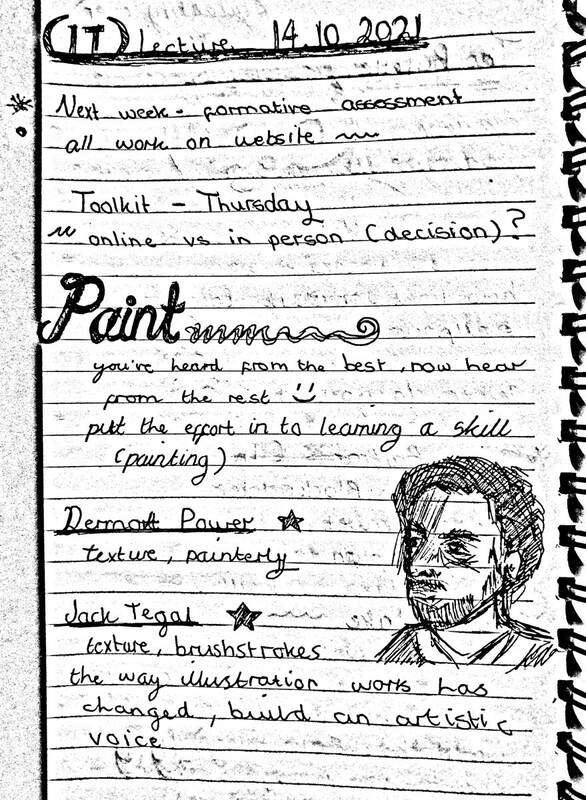 (IT) Lecture 14.10.2021
Next week - formative assessment
all work on website
Toolkit - Thursday
online vs in person (decision)?
Paint
you've heard from the best, now hear
from the rest
put the effort in to learning a skill
(painting)
Dermott Power
texture, painterly
Jack Tegal
texture, brushstrokes
the way illustration work has
changed, build an artistic
voice